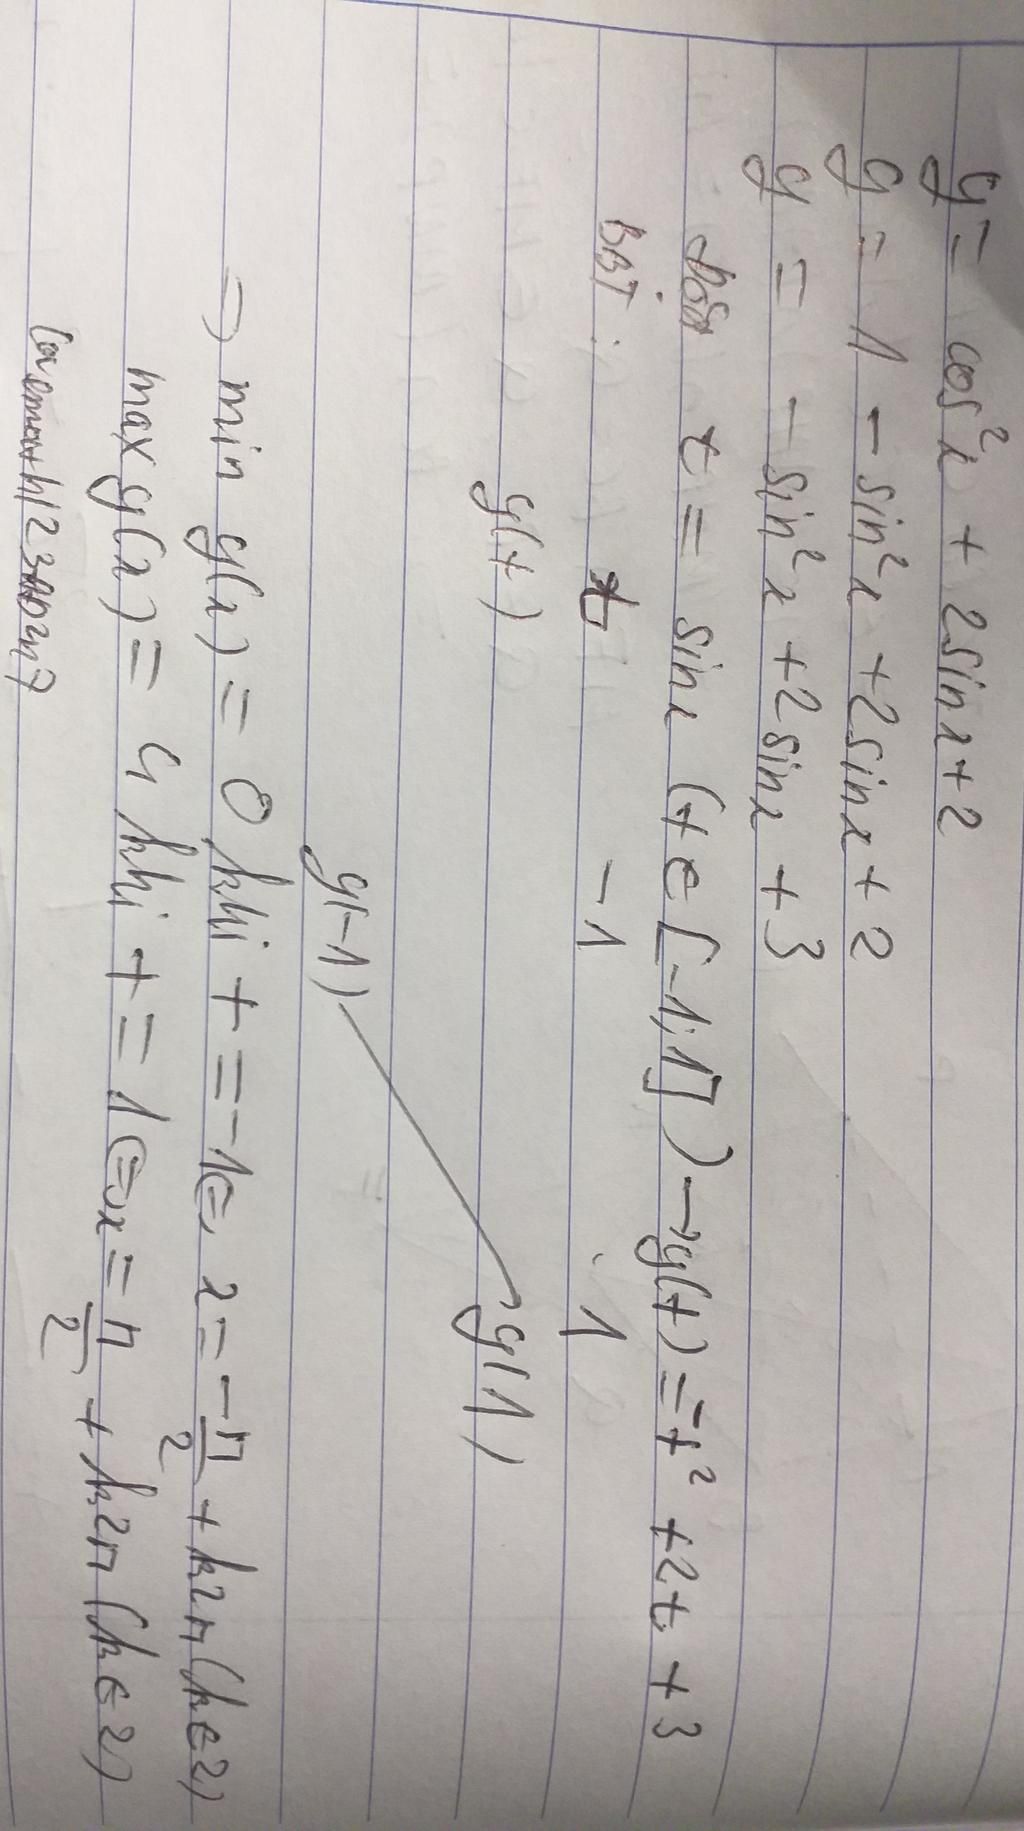 y = cos²x + 2sinx + 2
y = 1 - sin²x + 2sinx + 2
y = - sin²x + 2sinx + 3
t = sinx (t ∈ [-1;1]) → y(t) = -t² + 2t + 3
BBT: t -1 1
y(t) y(1)
y(-1)
=> min y(x) = 0 khi t = -1 <=> x = -π/2 + k2π (k ∈ Z)
max y(x) = 4 khi t = 1 <=> x = π/2 + k2π (k ∈ Z)